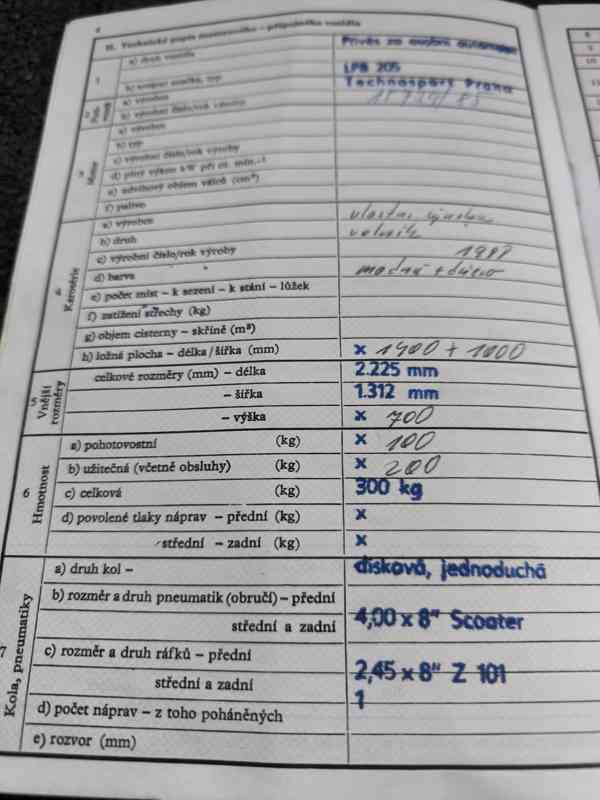 II. Technický popis motorového – přípojného vozidla
1
a) druh vozidla
Přívěs za osobní automobil
LPB 205
b) tovární značka, typ
Technosport Praha
a) výrobce
b) výrobní číslo/rok výroby
3
Motor
a) výrobce
b) typ
c) výrobní číslo/rok výroby
d) plný výkon kW při ot. min.-1
e) zdvihový objem válců (cm³)
f) palivo
4
Karosérie
a) výrobce
vlastní výroba
b) druh
valník
c) výrobní číslo/rok výroby
d) barva
modrá +
e) počet míst – k sezení – k stání – lůžek
f) zatížení střechy (kg)
g) objem cisterny – skříně (m³)
h) ložná plocha – délka/šířka (mm) x 1400 + 1000
5
Vnější rozměry
celkové rozměry (mm) – délka 2.225 mm
– šířka 1.312 mm
– výška x 700
6
Hmotnost
a) pohotovostní (kg) x 100
b) užitečná (včetně obsluhy) (kg) x 200
c) celková (kg) 300 kg
d) povolené tlaky náprav – přední (kg) x
střední – zadní (kg) x
7
Kola, pneumatiky
a) druh kol – disková, jednoduchá
b) rozměr a druh pneumatik (obručí) – přední
střední a zadní 4,00 x 8" Scooter
c) rozměr a druh ráfků – přední
střední a zadní 2,45 x 8" Z 101
d) počet náprav – z toho poháněných 1
e) rozvor (mm)